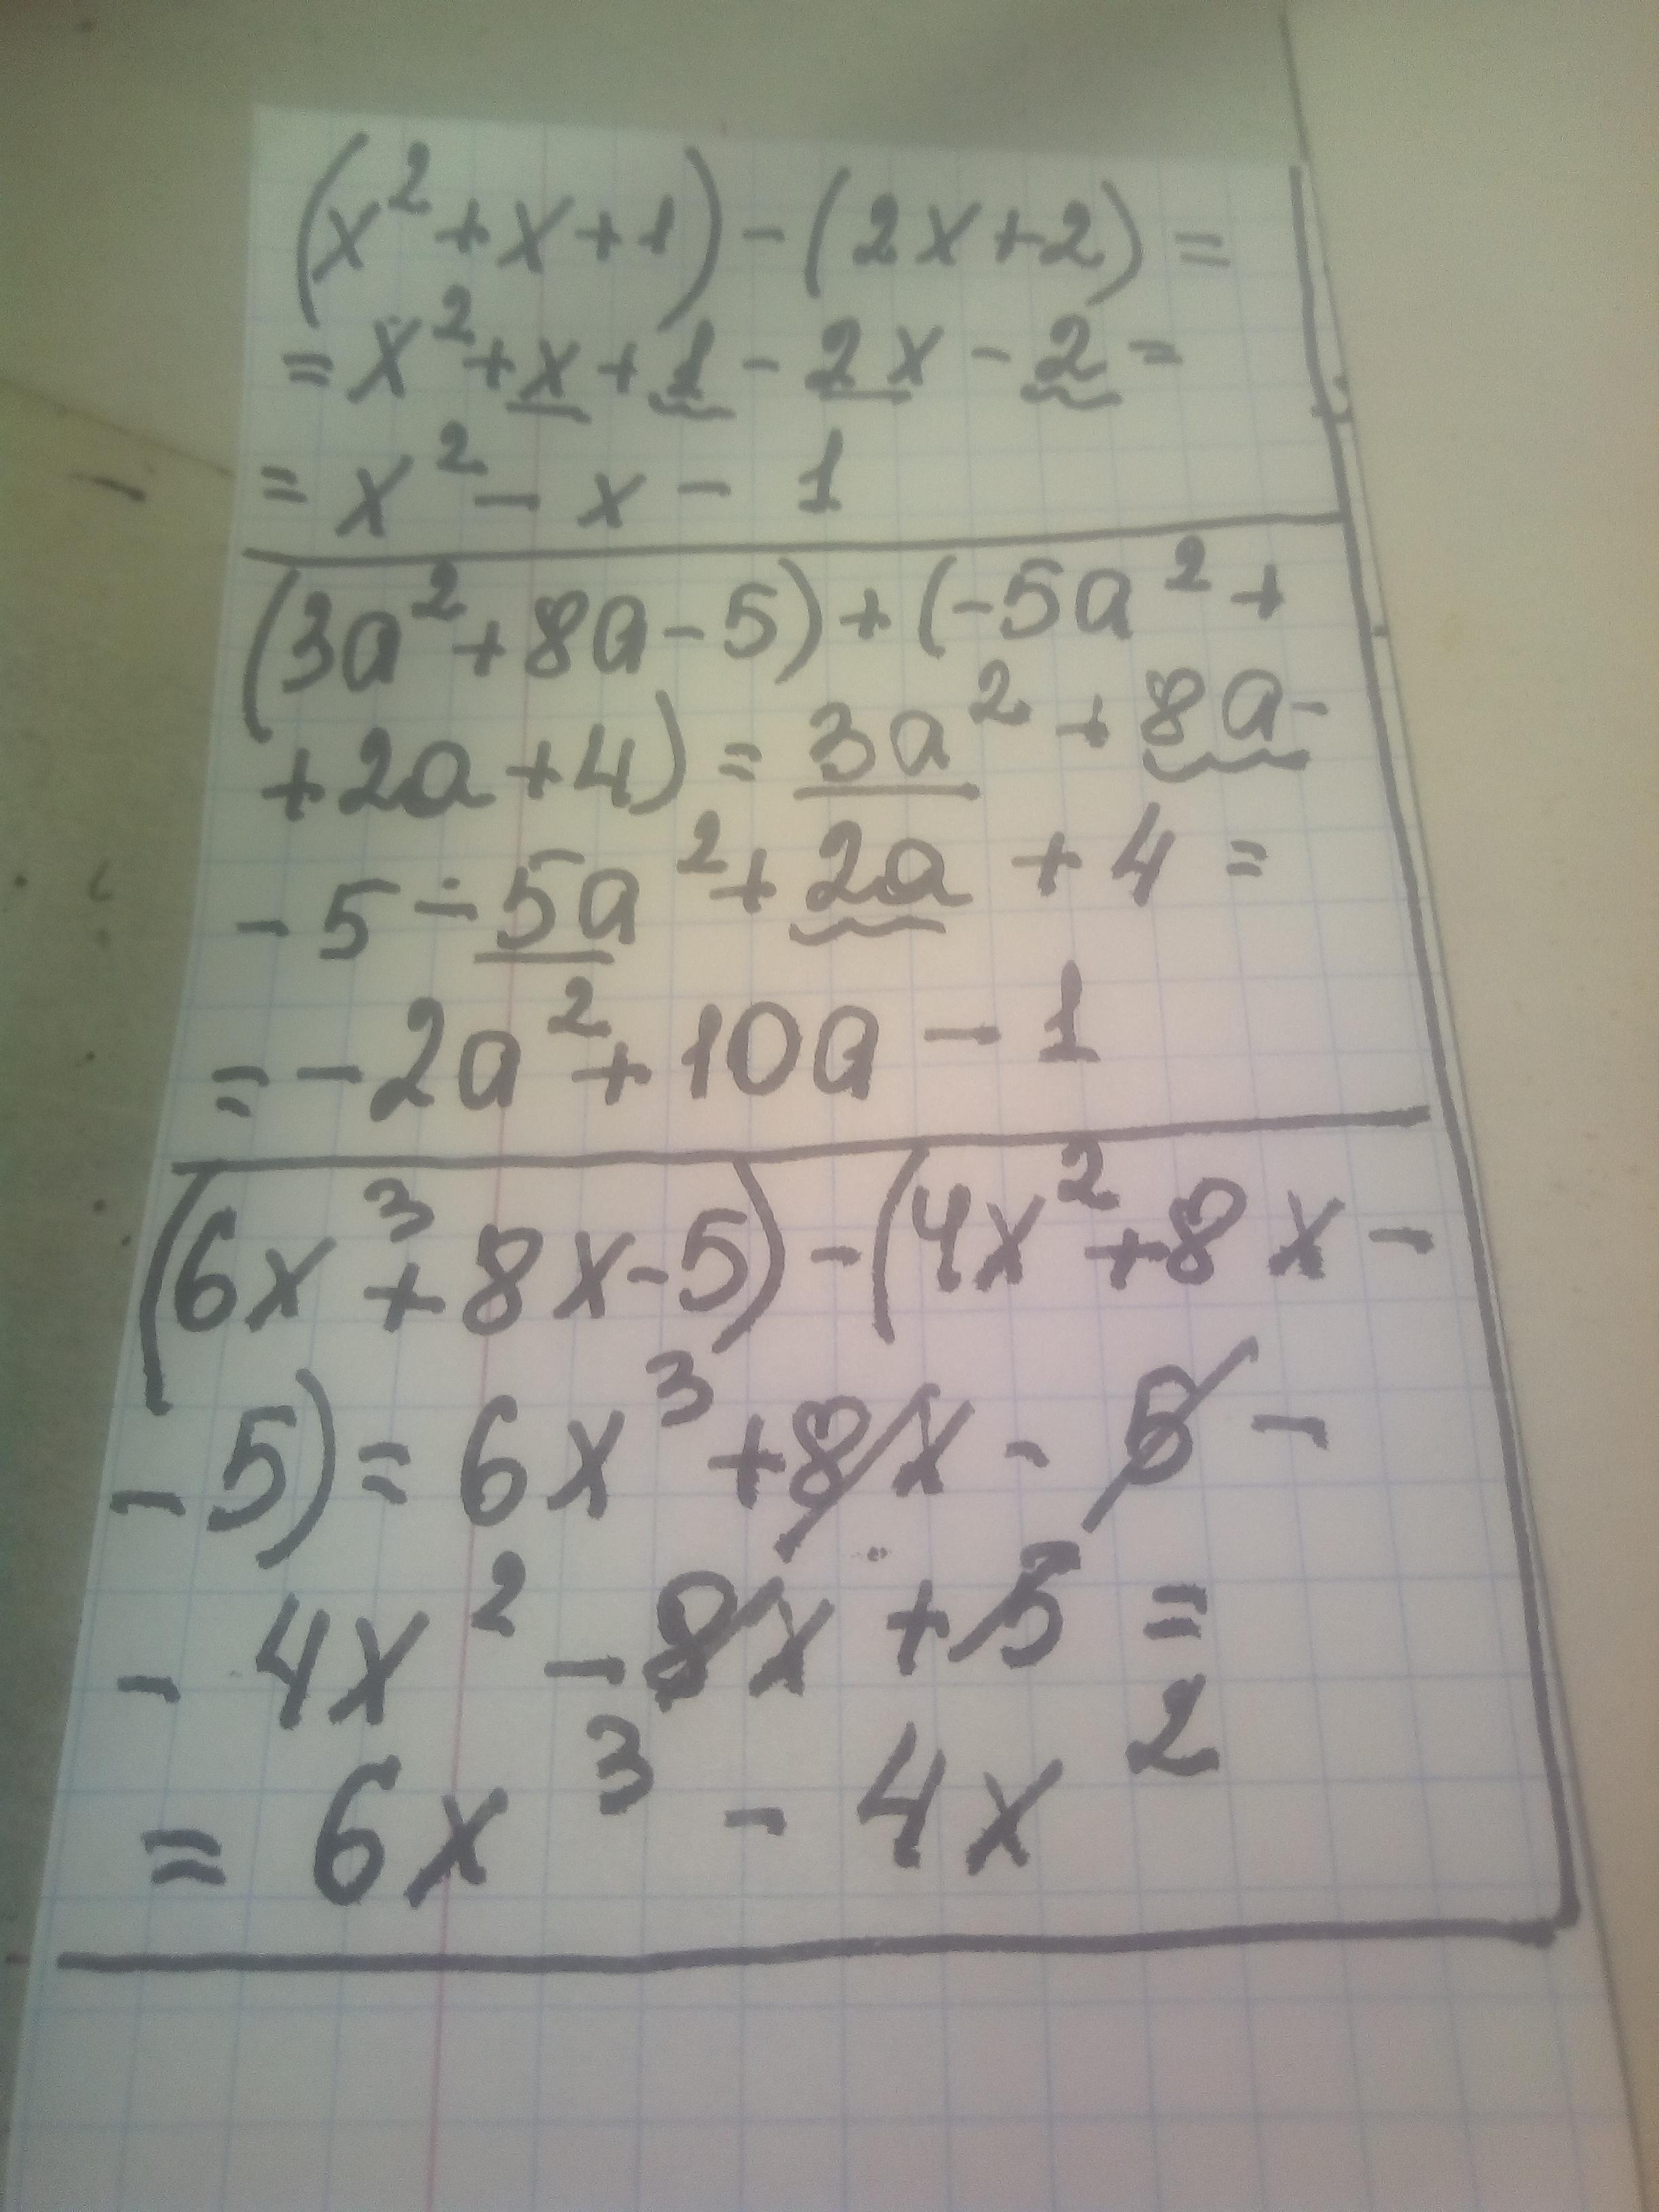 (x² + x + 1) - (2x + 2) =
= x² + x + 1 - 2x - 2 =
= x² - x - 1
(3a² + 8a - 5) + (-5a² +
+ 2a + 4) = 3a² + 8a -
- 5 - 5a² + 2a + 4 =
= -2a² + 10a - 1
(6x³ + 8x - 5) - (4x² + 8x -
- 5) = 6x³ + 8x - 5 -
- 4x² - 8x + 5 =
= 6x³ - 4x²